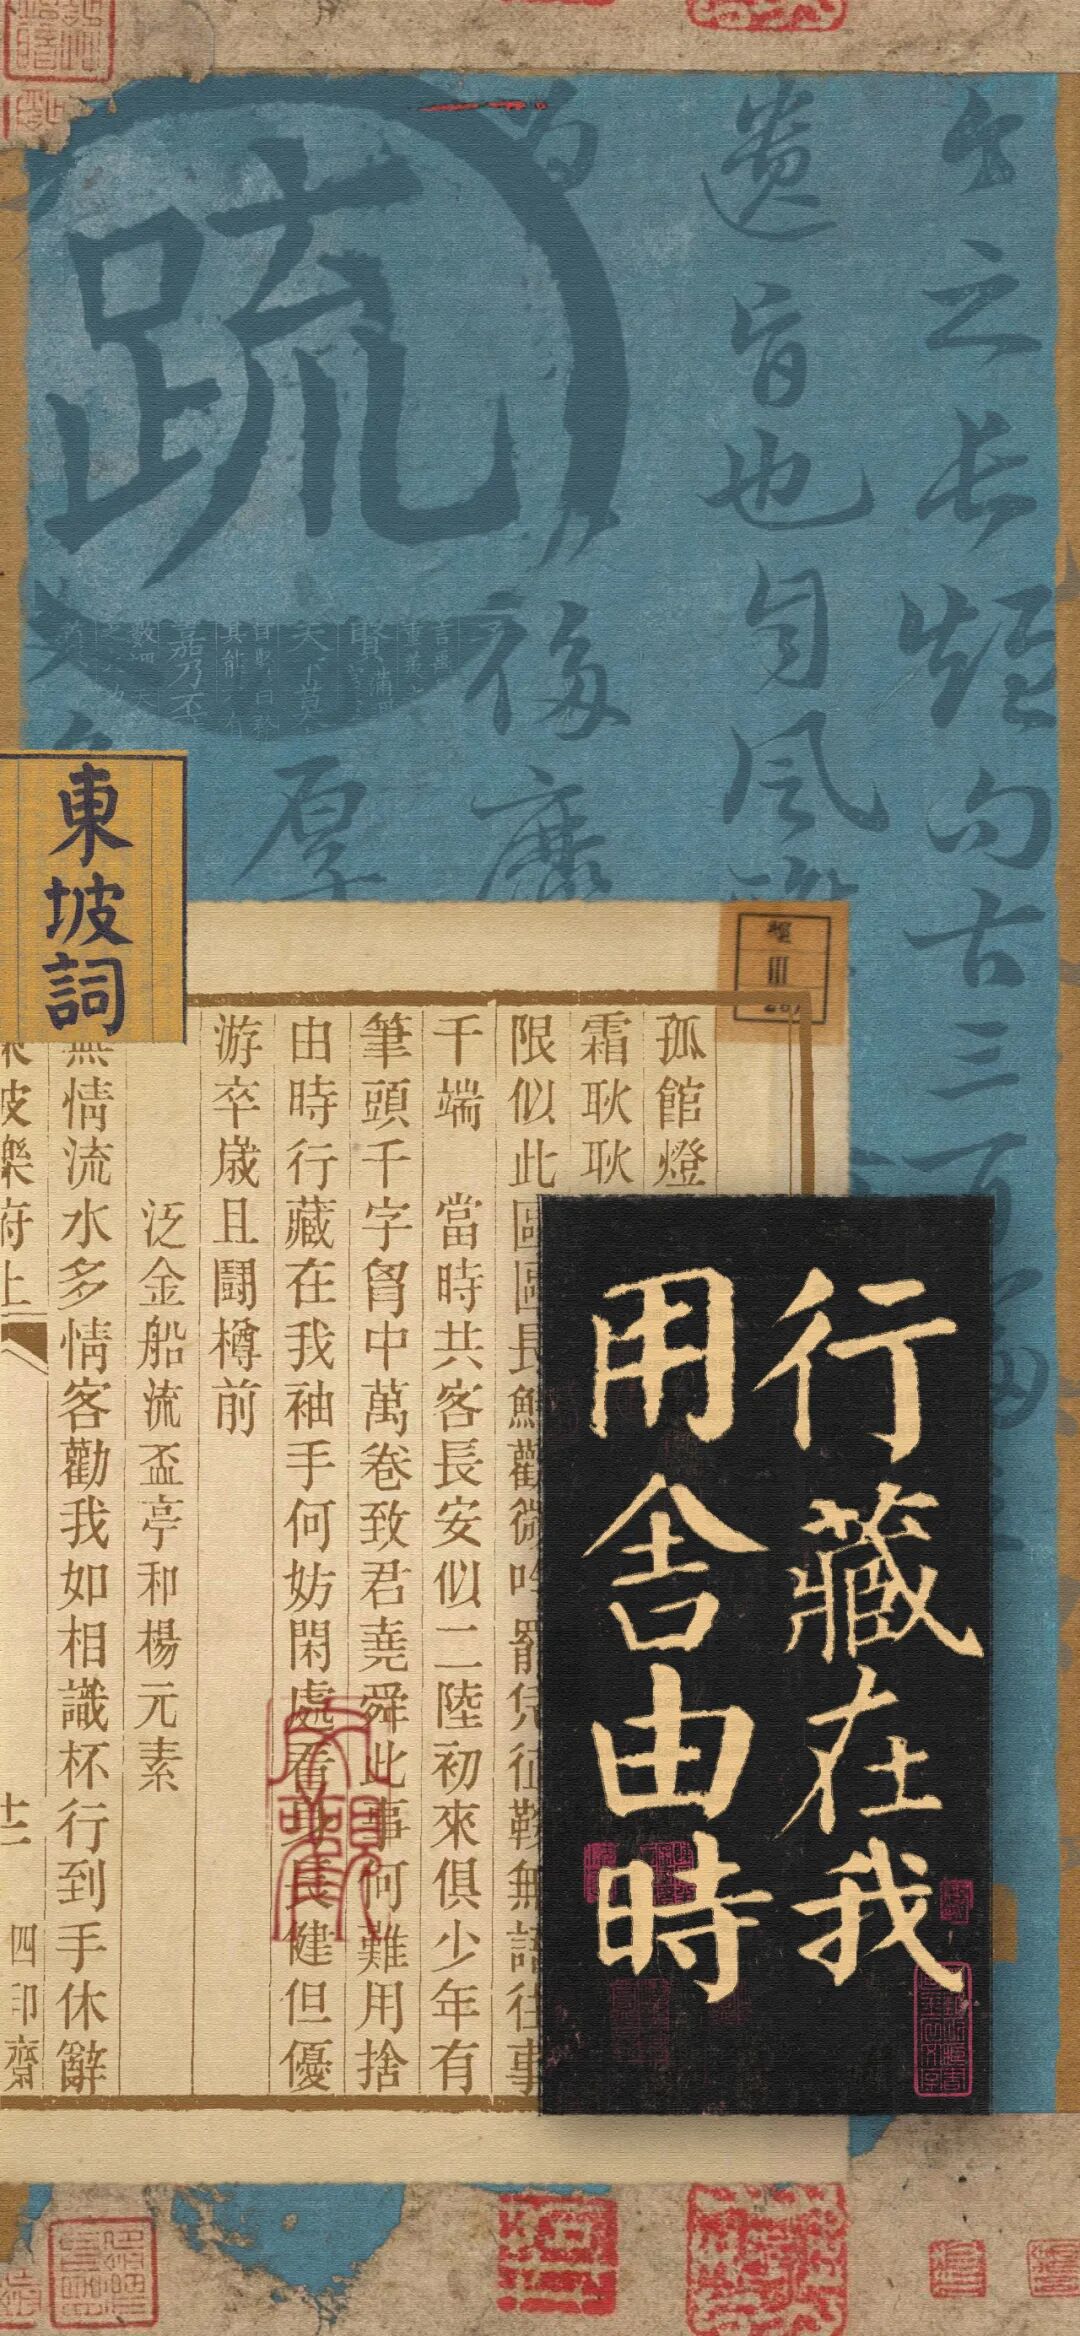 之長短句古三百篇
遺旨也自風雅
後靡
厚
疏
東坡詞
孤館燈
霜耿耿
限似此區區長鮮歡微吟罷凭征鞍無語往事
千端　當時共客長安似二陸初來俱少年有
筆頭千字胷中萬卷致君堯舜此事何難用捨
由時行藏在我袖手何妨閑處看身長健但優
游卒歲且鬭樽前
泛金船流盃亭和楊元素
無情流水多情客勸我如相識杯行到手休辭
東坡樂府上　十二　四印齋
行藏在我
用舍由時